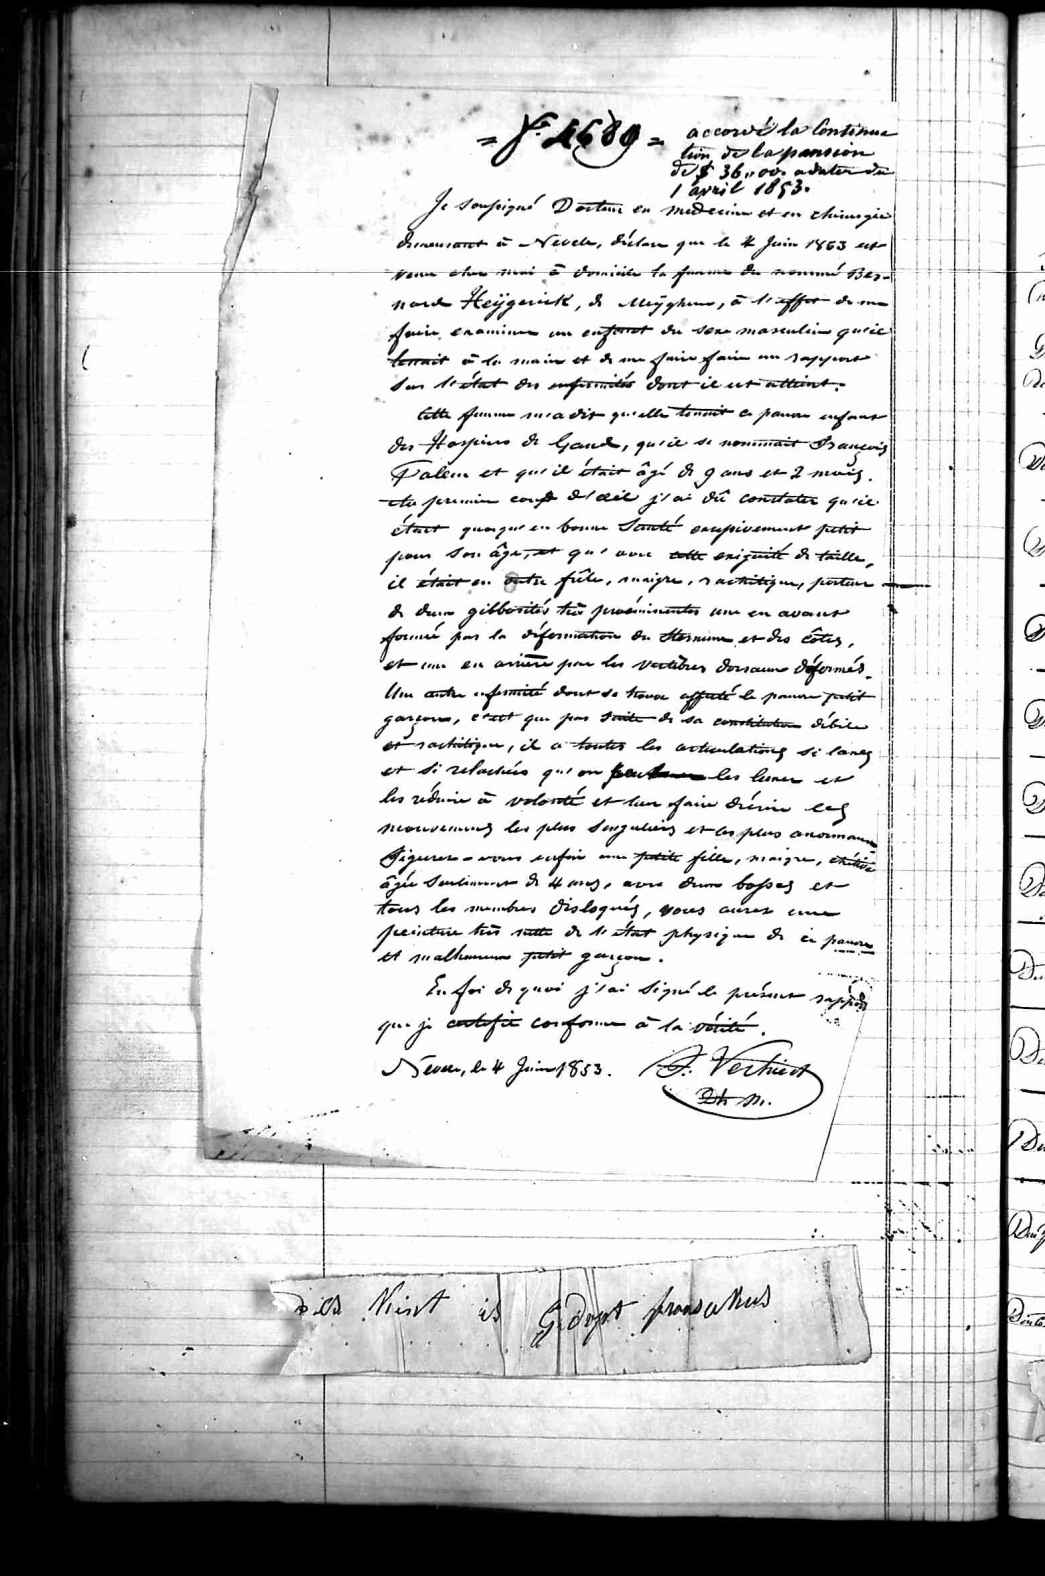 = N° 4689 =
accordé la Continua
tion de la pension
de $ 36,,00. a dater du
1 avril 1853.
Je soussigné Docteur en médecine et en chirurgie
demeurant à Nevele, déclare que le 4 Juin 1853 est
venue chez moi à domicile la femme du nommé Ber-
nard Heÿgerick, de Meÿghem, à l'effet de me
faire examiner un enfant du sexe masculin qu'elle
tenait à la main et de me faire faire un rapport
sur l'état des infirmités dont il est atteint.
Cette femme m'a dit qu'elle tenait ce pauvre enfant
des Hospices de Gand, qu'il se nommait François
Falem et qu'il était âgé de 9 ans et 2 mois.
Au premier coup d'œil j'ai dû constater qu'il
était quoique en bonne santé excessivement petit
pour son âge, et qu'avec cette exiguité de taille,
il était en outre frêle, maigre, rachitique, porteur
de deux gibbosités très proéminentes une en avant
formée par la déformation du sternum et des côtes,
et une en arrière par les vertèbres dorsaux déformés.
Une autre infirmité dont se trouve affecté le pauvre petit
garçon, c'est que par suite de sa constitution débile
et rachitique, il a toutes les articulations si laxes
et si relachées qu'on peut les luxer et
les réduire à volonté et leur faire décrire les
mouvemens les plus singuliers et les plus anormaux
Figurez-vous enfin une petite fille, maigre, chétive
âgée seulement de 4 ans, avec deux bosses et
tous les membres disloqués, vous aurez une
peinture très nette de l'état physique de ce pauvre
et malheureux petit garçon.
En foi de quoi j'ai signé le présent rapport
que je certifie conforme à la vérité.
Nevele, le 4 Juin 1853.
Dr m.
dees Kint is Gdopt